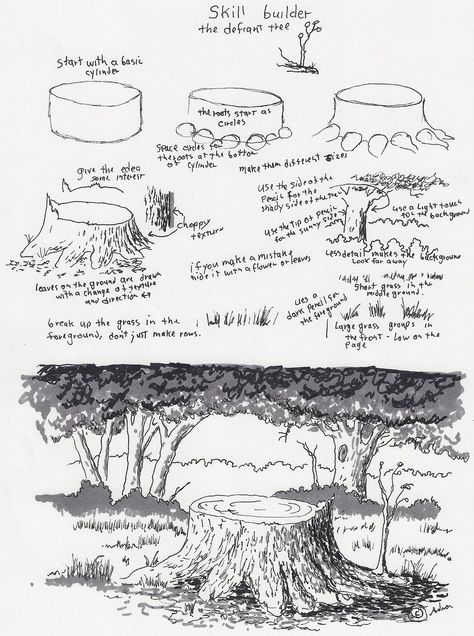 Skill builder
the defiant tree
Start with a basic
cylinder
the roots start as
circles
Space circles for
the roots at the bottom
of cylinder
make them different sizes
give the edea
some interest
choppy
texture
leaves on the ground are drawn
with a change of texture
and direction
use the side of the
pencil for the
shady side of the tree
use the tip of pencil
for the sunny side
use a light touch
for the background
Less detail makes the background
Look far away
if you make a mistake
hide it with a flower or leaves
Short grass in the
middle ground.
uses a
dark pencil for
the foreground
Large grass groups in
the front - Low on the
page
break up the grass in the
foreground, dont just make rows.
©